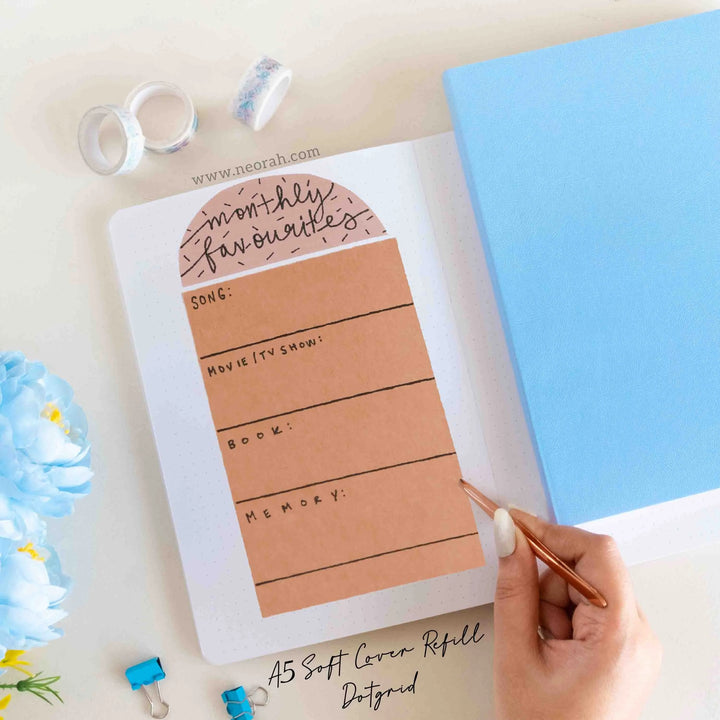 www.neorah.com
monthly
favourites
SONG:
MOVIE/TV SHOW:
BOOK:
MEMORY:
A5 Soft Cover Refill
Dotgrid